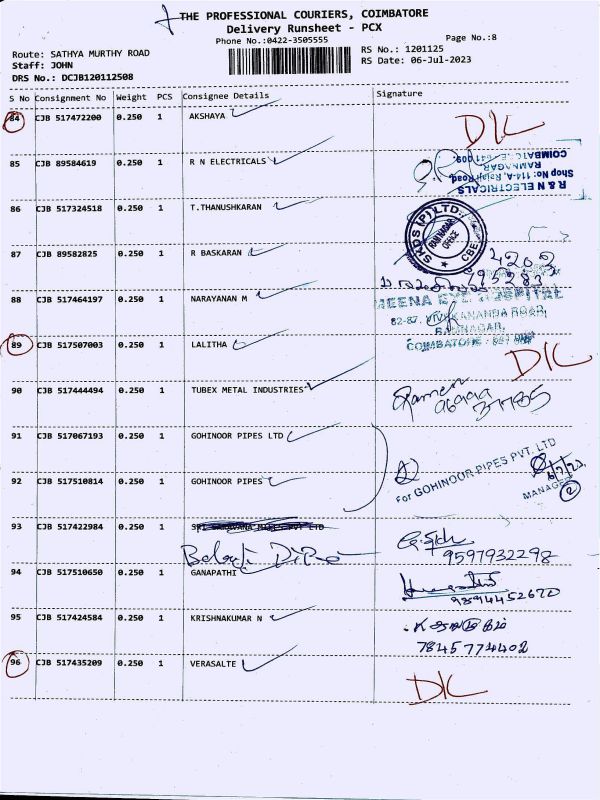 THE PROFESSIONAL COURIERS, COIMBATORE
Delivery Runsheet - PCX
Phone No.:0422-3505555
Page No.:8
Route: SATHYA MURTHY ROAD
Staff: JOHN
DRS No.: DCJB120112508
RS No.: 1201125
RS Date: 06-Jul-2023
S No Consignment No Weight PCS Consignee Details Signature
84 CJB 517472200 0.250 1 AKSHAYA D/C
85 CJB 89584619 0.250 1 R N ELECTRICALS
R & N ELECTRICALS
Shop No: 114-A, Rajaji Road,
RAMNAGAR
COIMBATORE-641 009.
86 CJB 517324518 0.250 1 T.THANUSHKARAN
SKDS (P) LTD.
RAMNAGAR
OFFICE
CBE
87 CJB 89582825 0.250 1 R BASKARAN
88 CJB 517464197 0.250 1 NARAYANAN M
MEENA EYE HOSPITAL
82-87, VIVEKANANDA ROAD,
RAMNAGAR,
COIMBATORE
89 CJB 517507003 0.250 1 LALITHA D/C
90 CJB 517444494 0.250 1 TUBEX METAL INDUSTRIES
91 CJB 517067193 0.250 1 GOHINOOR PIPES LTD
For GOHINOOR PIPES PVT. LTD
MANAGER
2
92 CJB 517510814 0.250 1 GOHINOOR PIPES
93 CJB 517422984 0.250 1
9597932298
94 CJB 517510650 0.250 1 GANAPATHI
9894452670
95 CJB 517424584 0.250 1 KRISHNAKUMAR N
7845774402
96 CJB 517435209 0.250 1 VERASALTE D/C